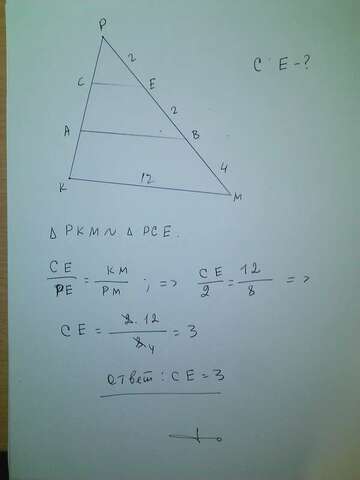 P
2
C E - ?
C
E
2
A
B
4
K
12
M
Δ PKM ~ Δ PCE.
CE/PE = KM/PM ; => CE/2 = 12/8 =>
CE = 2·12/8 4 = 3
Ответ: CE = 3